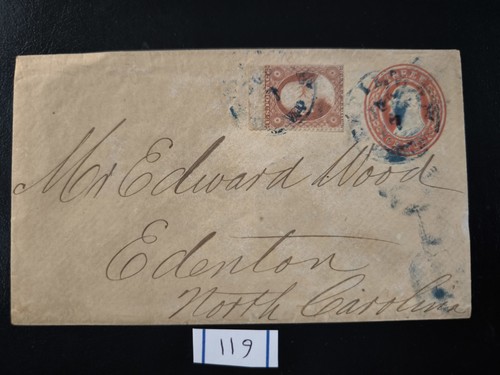 Mr Edward Wood
Edenton
North Carolina
119